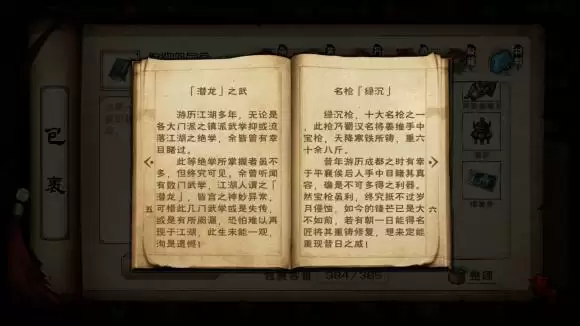 「潜龙」之武
游历江湖多年，无论是
各大门派之镇派武学抑或流
落江湖之绝学，余皆曾有幸
目睹过。
此等绝学所掌握者虽不
多，但终究可见。余曾听闻
有数门武学，江湖人谓之「
潜龙」，皆言之神妙异常，
可惜此几门武学或是失传，
或是有所阙漏，恐怕难以再
现于江湖，此生未能一观，
洵是遗憾！
五
名枪「绿沉」
绿沉枪，十大名枪之一
，此枪乃蜀汉名将姜维手中
宝枪，天降寒铁所铸，重六
十余八斤。
昔年游历成都之时有幸
于平襄侯后人手中目睹其真
容，确是不可多得之利器。
然宝枪虽利，终究抵不过岁
月侵蚀，如今的锋芒已是大
不如前，若有朝一日能得名
匠将其重铸修复，想来定能
重现昔日之威！
六
包裹
384/385
整理